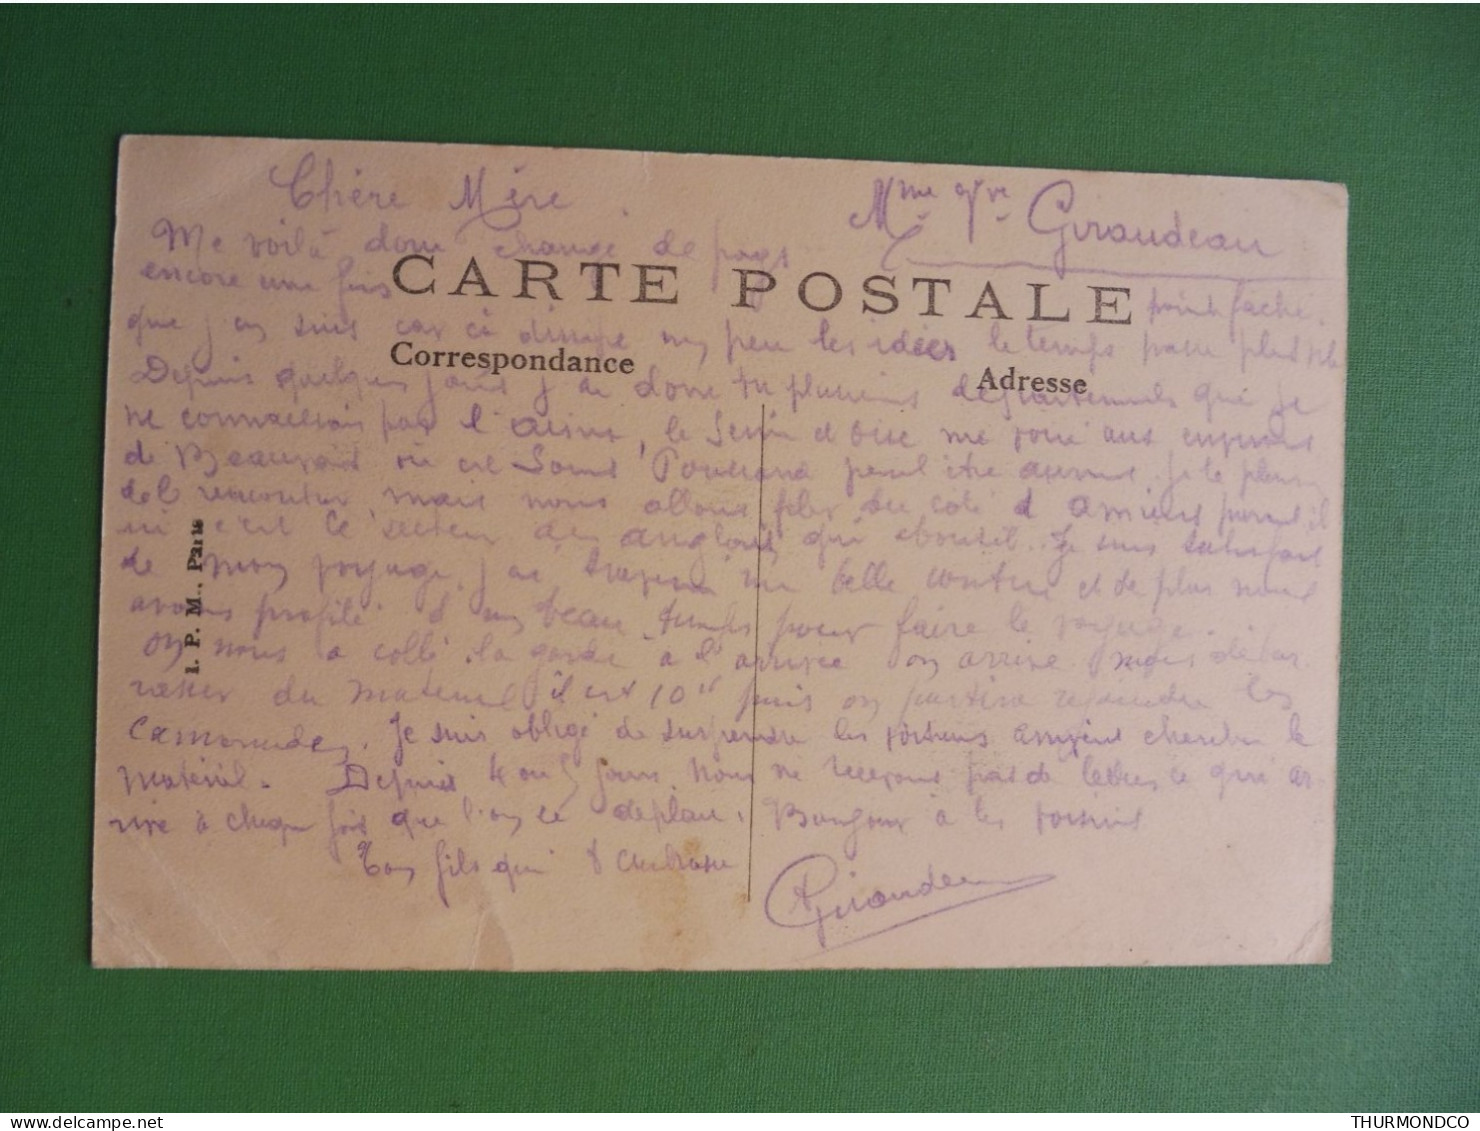 Chère Mère
Mme Vve Giraudeau
Me voilà donc changé de pays
encore une fois
CARTE POSTALE
point faché.
que j'en suis car ça dissipe un peu les idées le temps passe plus vite
Correspondance
Adresse
Depuis quelques jours j'ai donc vu plusieurs départements que je
ne connaissais pas l'aisne, le Seine et Oise me voici aux environs
de Beauvais où est Louis peut être aurai je le plaisir
de le rencontrer, mais nous allons filer du coté d'Amiens
c'est le secteur des anglais qui Je suis satisfait
de mon voyage, j'ai traversé une belle contrée et de plus nous
avons profité d'un beau temps pour faire le voyage.
on nous a collé la garde à l'arrivée on arrive
du materiel il est 10h puis on partira rejoindre les
camarades. Je suis obligé de suspendre les voitures chercher le
matériel. Depuis 4 ou 5 jours nous ne recevons pas de lettres ce qui ar-
rive à chaque fois que l'on se déplace. Bonjour à les voisins
Ton fils qui t'embrasse
Giraudeau
I. P. M., Paris
THURMONDCO